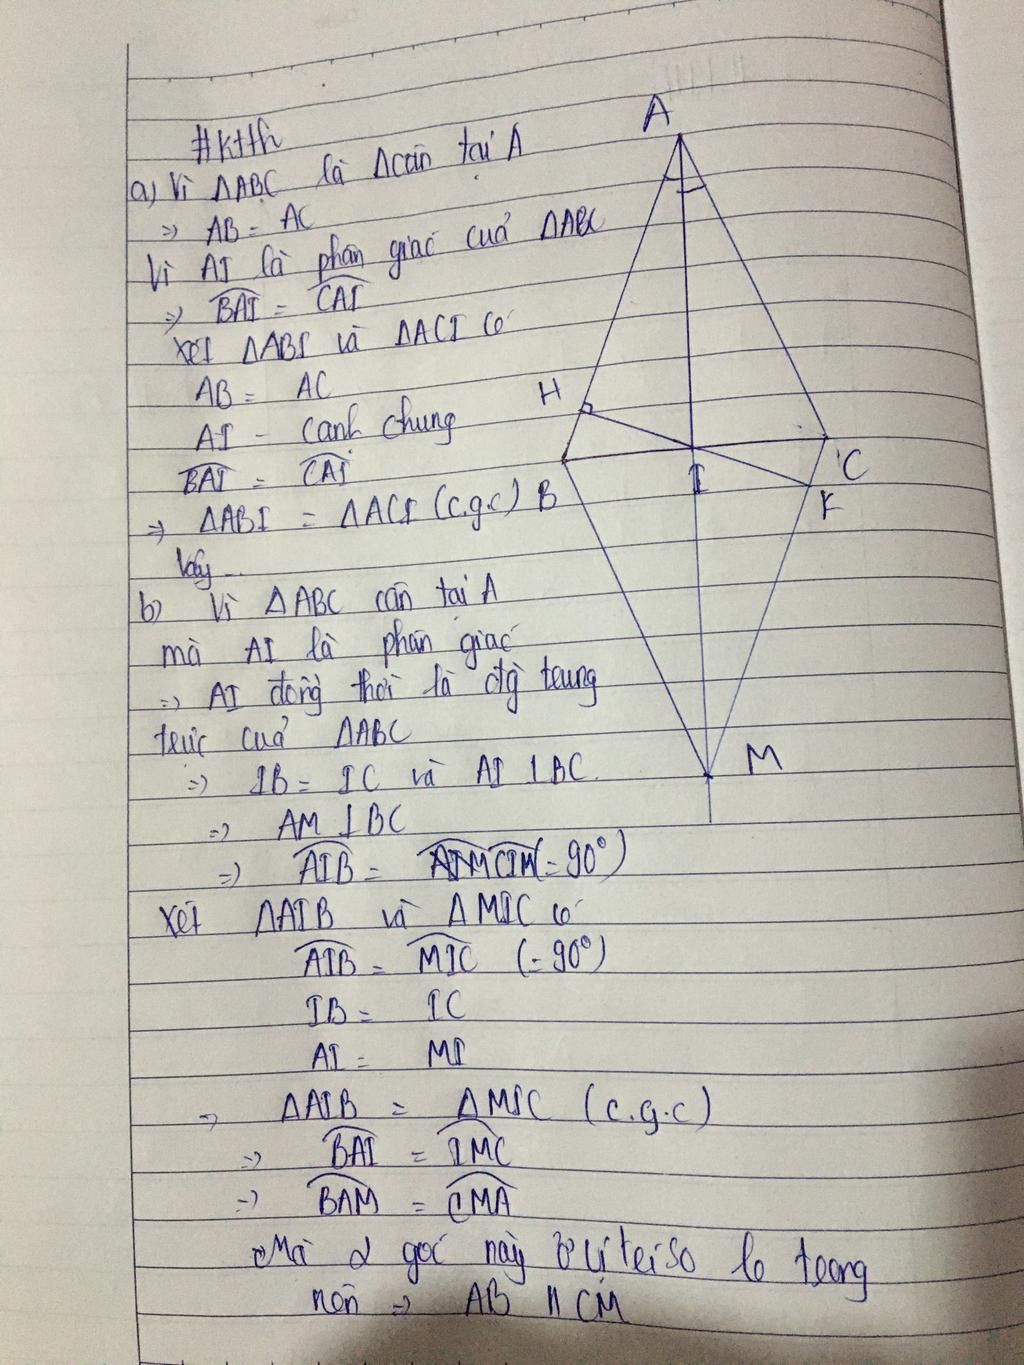 #ktth
a) Vì ΔABC là Δcân tại A
=> AB = AC
Vì AI là phân giác cuả ΔABC
=> BAI = CAI
Xét ΔABI và ΔACI có
AB = AC
AI - canh chung
BAI = CAI
=> ΔABI = ΔACI (c.g.c)
Vậy...
b) Vì ΔABC cân tại A
mà AI là phân giác
=> AI đồng thời là đg trung
trực cuả ΔABC
=> IB = IC và AI ⊥ BC
=> AM ⊥ BC
=> AIB = CIM (= 90°)
Xét ΔAIB và ΔMIC có
AIB = MIC (= 90°)
IB = IC
AI = MI
=> ΔAIB = ΔMIC (c.g.c)
=> BAI = IMC
=> BAM = CMA
Mà 2 góc này ở vị trí so le trong
nên => AB // CM
A
H
B
I
C
K
M